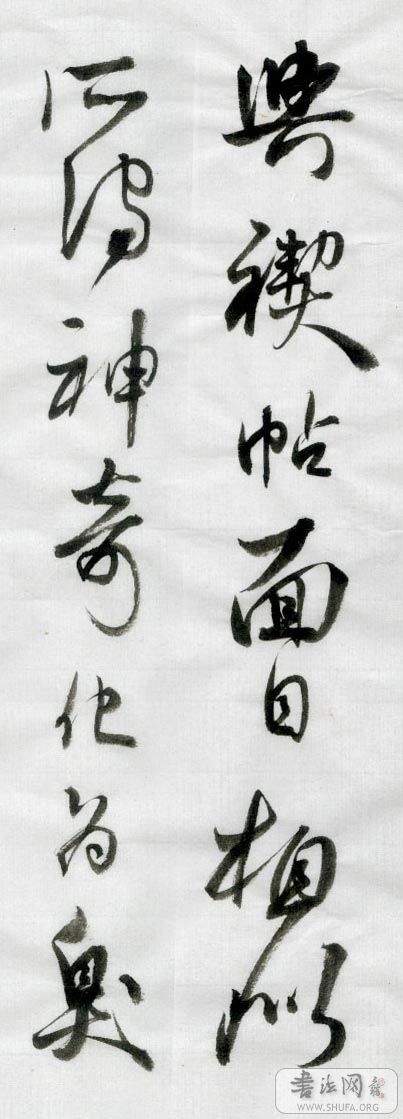 與禊帖面目相似
所謂神奇化為臭
書法网
WWW.SHUFA.ORG